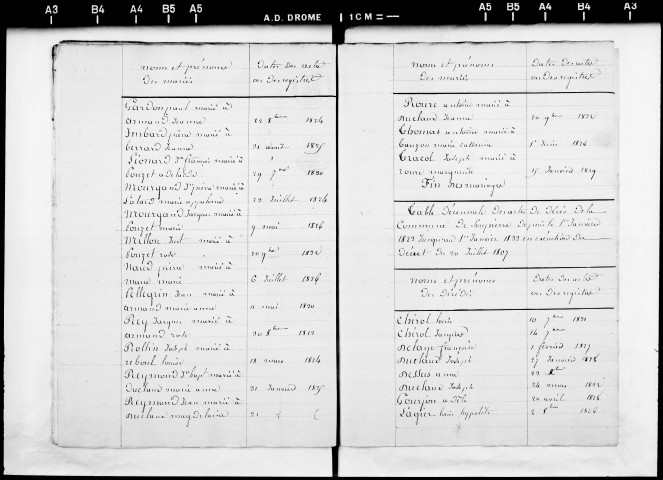 A3 B4 A4 B5 A5 A.D. DROME 1 CM = A5 B5 A4 B4 A3
noms et prénoms
Des mariés
Dates Des actes
ou Des registres
Gardon paul marié à
armand Jeanne 22 8bre 1824
Imbard pierre marié à
Serrard Jeanne 31 août 1825
Léonard Jn françois marié à
Pouzet adelaïde 29 7bre 1830
Mourgand Jn pierre marié à
Salard marie appolonie 23 Juillet 1824
Mourgand Jacques marié à
Pouzet marie 9 mai 1826
Millon Just marié à
Pouzet rose 20 9bre 1832
Naud pierre marié à
6 Juillet 1826
Pellegrin Jean marié à
armand marie anne 11 mai 1830
Rey Jacques marié à
armand rose 20 8bre
Rollin Joseph marié à
reboul louise 18 mars 1824
Reymond Jn bapt marié à
Duclaux marie anne 31 Janvier
Reymond Jean marié à
Duclaux magdelaine 21
noms et prénoms
Des mariés
Dates Des actes
ou Des registres
Roure antoine marié à
Duclaux Jeanne 20 9bre 1832
Thomas antoine marié à
Gauzon marie catherine 5 Juin 1826
Tracol Joseph marié à
roure marguerite 15 Janvier 1829
Fin Des mariages
Table Décennale Des actes De Décès De la
Commune De Depuis le 1er Janvier
1823 Jusqu'au 1er Janvier 1833 en exécution Du
Décret Du 20 Juillet 1807
noms et prénoms
Des Décédés
Dates Des actes
ou Des registres
Chérol louis 10 7bre 1831
Chérol Jacques 14 7bre
Delaye françoise 1 février 1827
Duclaux Joseph 27 Janvier 1828
Dessus anne 23 8bre
Duclaux Joseph 24 mars 1832
Gourjon 20 avril 1828
Lagier louis hypolite 2 8bre 1826